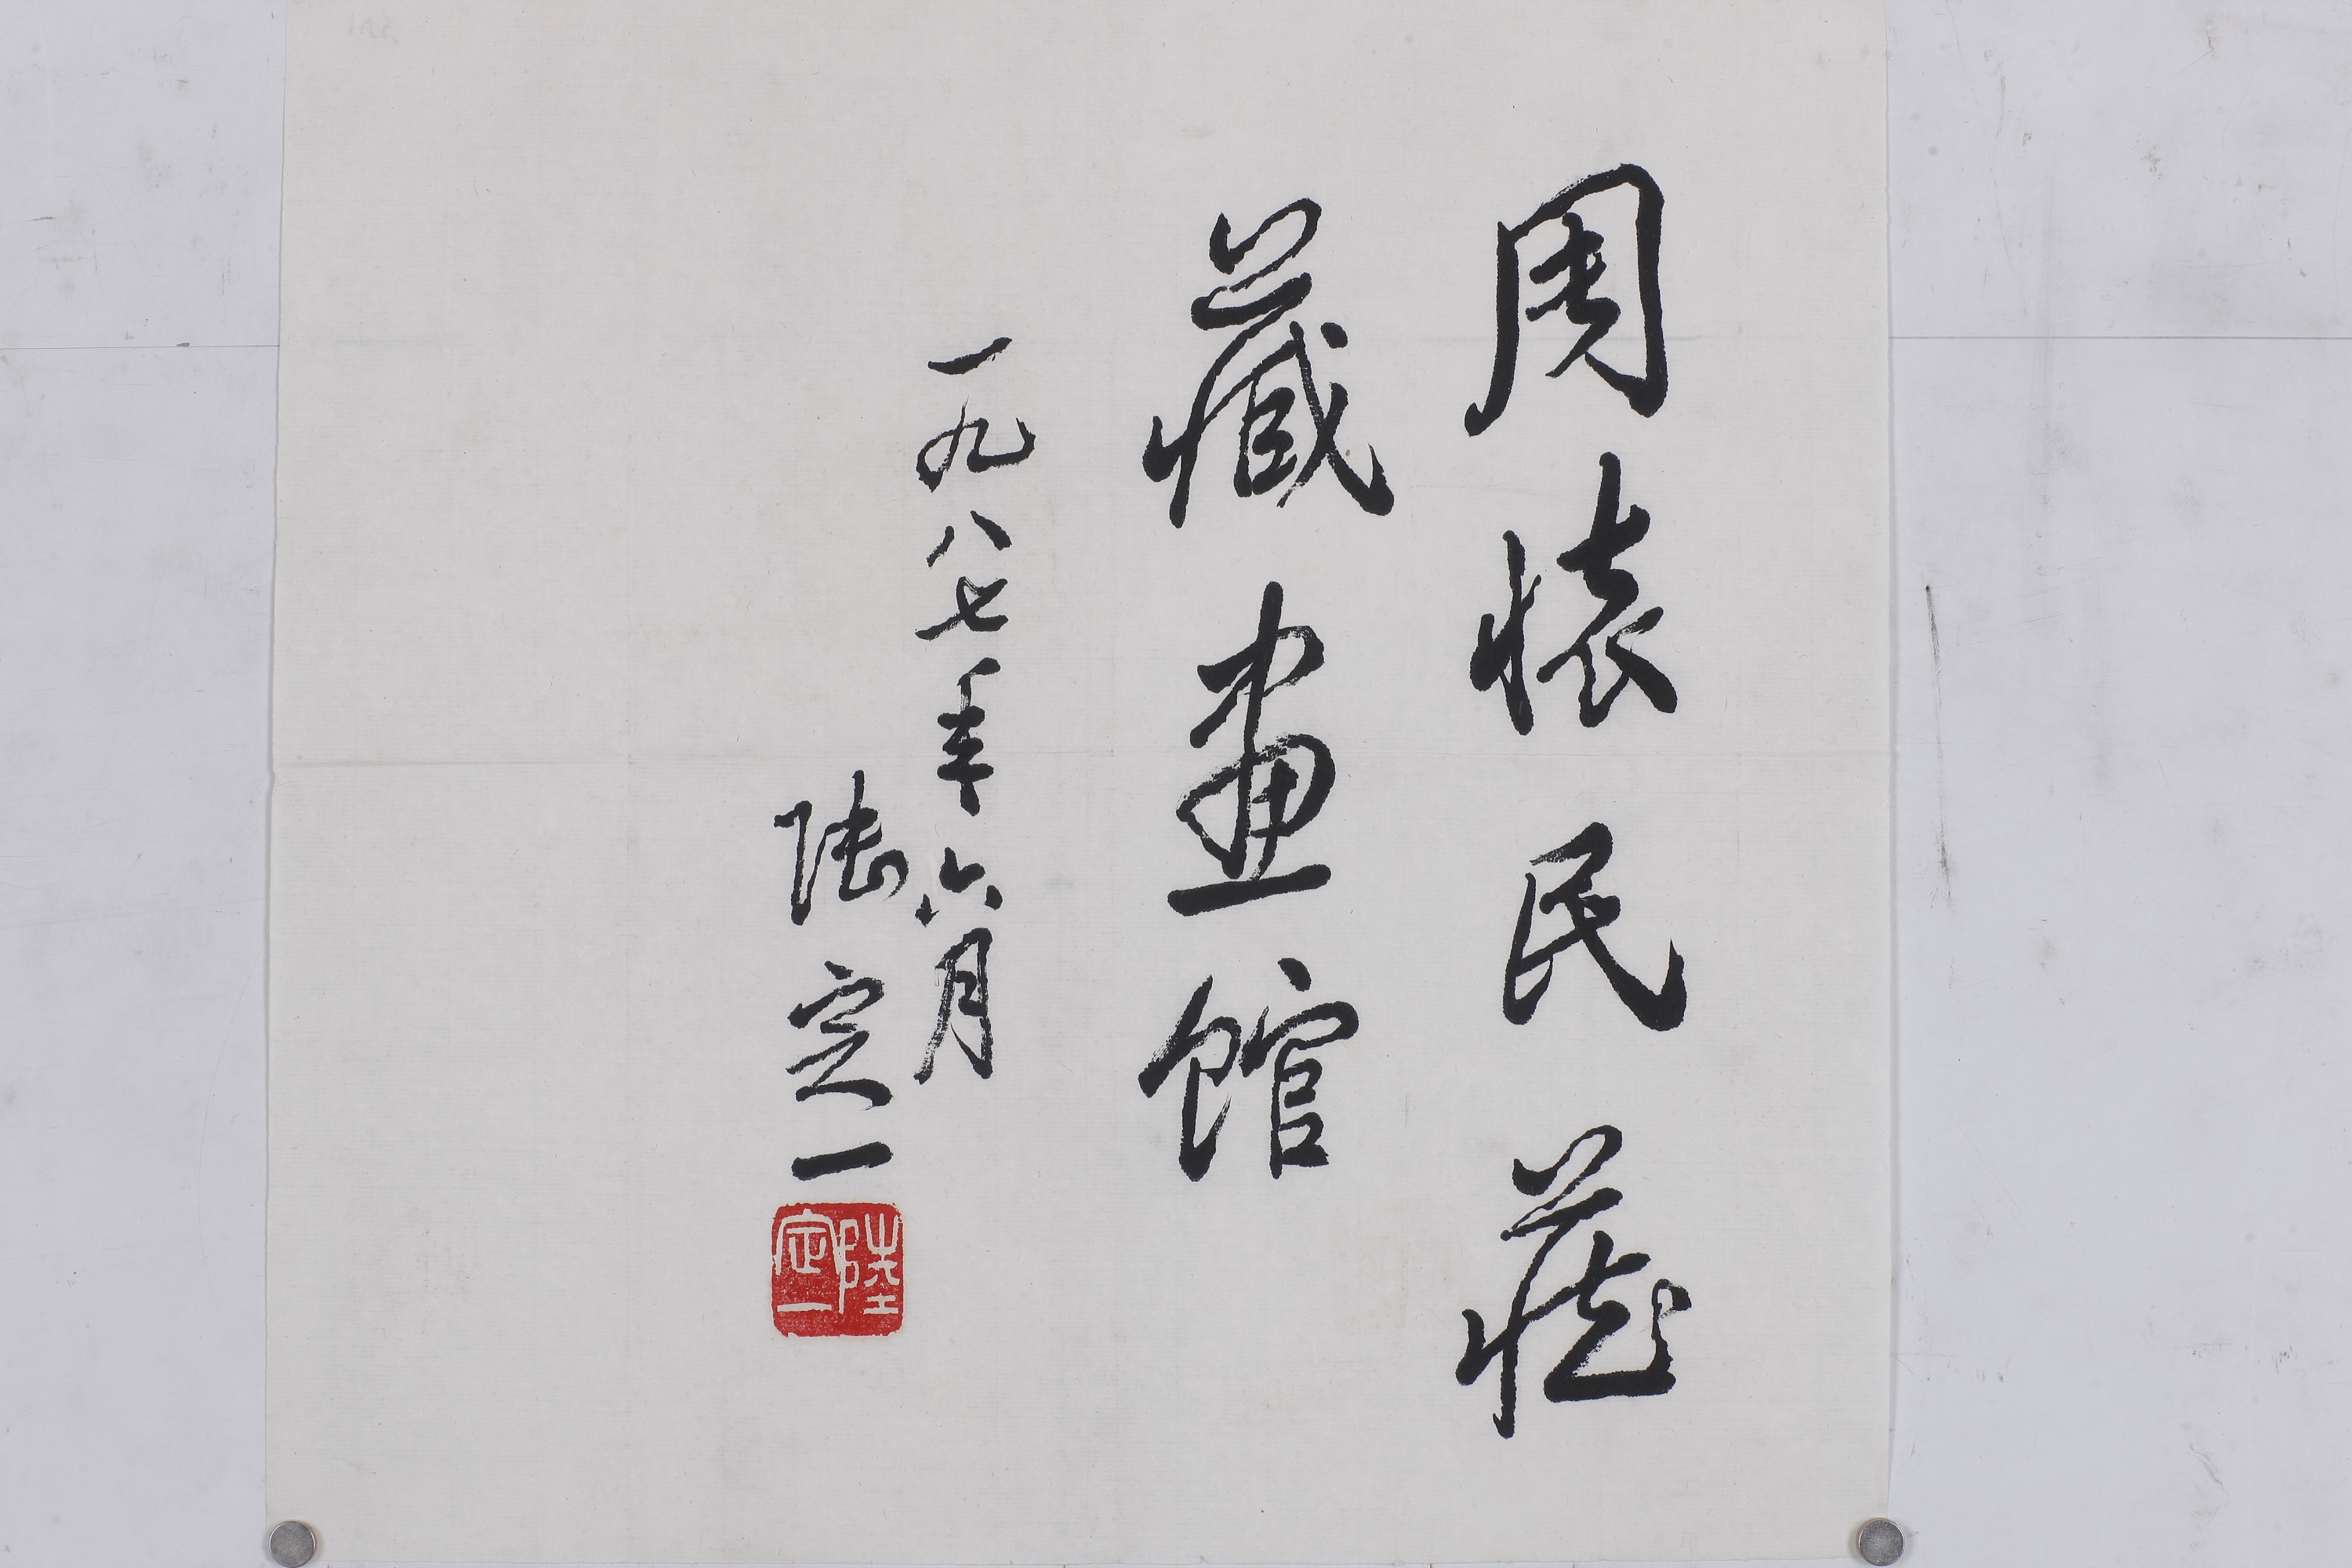 周懷民藏
藏畫館
一九八七年六月
陸定一
陸定一